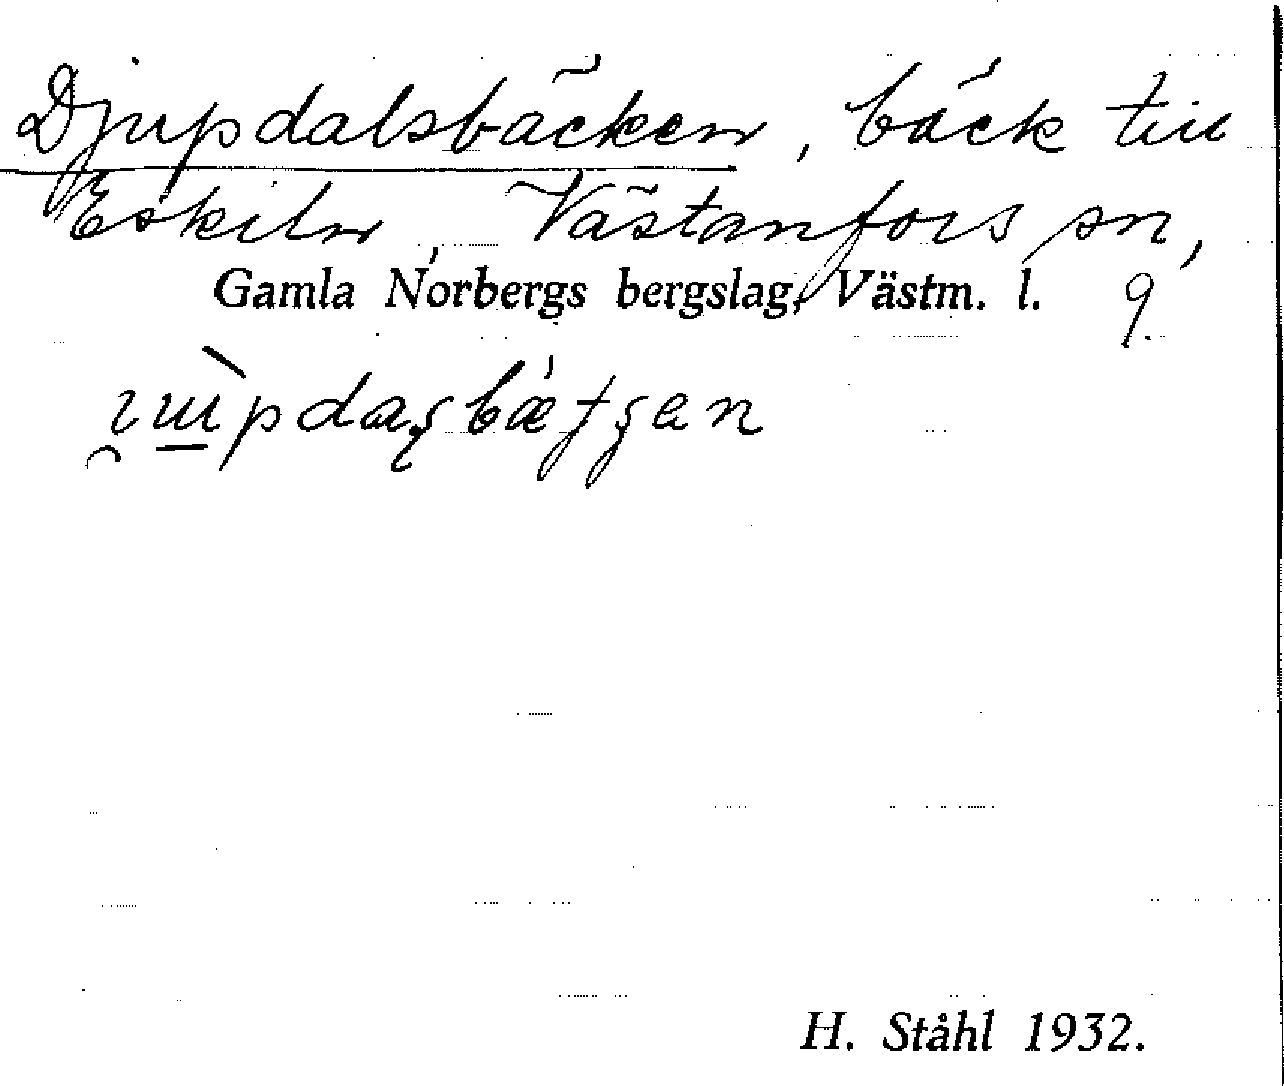 Djupdalsbäcken, bäck till
Eskiln, Västanfors sn,
Gamla Norbergs bergslag, Västm. l. 9.
H. Ståhl 1932.